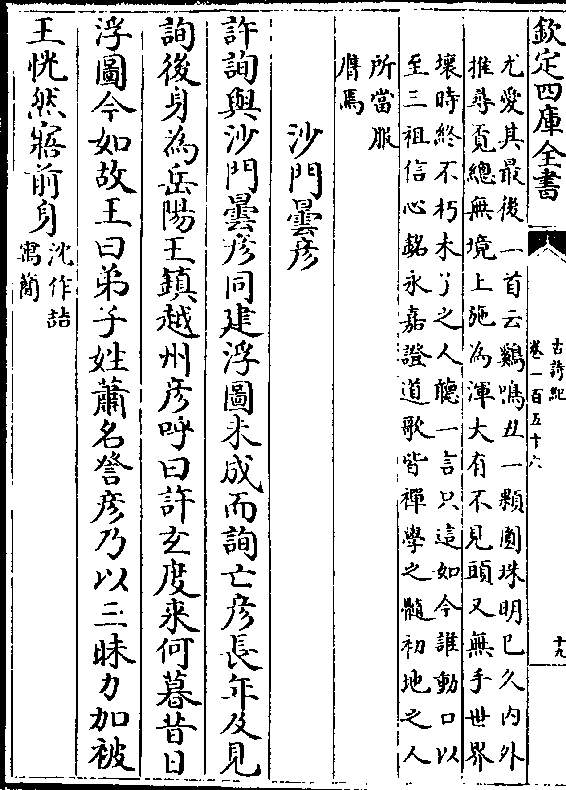 欽定四庫全書
古詩紀
卷一百五十六
十九
尤愛其最後一首云鷄鳴丑一顆圓珠明已久内外
推尋覓總無境上施為渾大有不見頭又無手世界
壞時終不朽未了之人聽一言只這如今誰動口以
至三祖信心銘永嘉證道歌皆禪學之髓初地之人
所當服
膺焉
沙門曇彦
許詢與沙門曇彦同建浮圖未成而詢亡彦長年及見
詢後身為岳陽王鎮越州彦呼曰許玄度来何暮昔日
浮圖今如故王曰弟子姓蕭名詧彦乃以三昧力加被
王恍然寤前身
沈作喆
寓簡